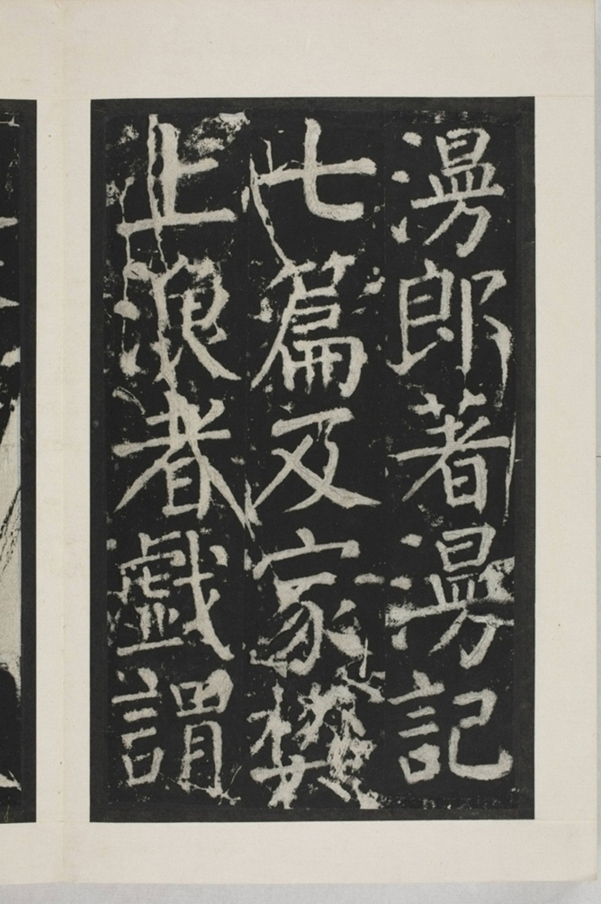 漫郎著漫記
七篇及家樊
上浪者戲謂